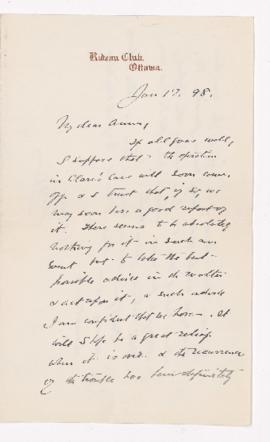 Rideau Club,
Ottawa.
Jan 17. 98.
My dear Annie,
If all goes well,
I suppose that the operation
in Clare's case will soon come
off & I trust that, if so, we
may soon have a good report of
it. There seems to be absolutely
nothing for it in such an
event but to take the best
possible advice in the matter
& act upon it, & such advice
I am confident that we have. It
will be a great relief
when it is over. & the recurrence
of the trouble has been definitely